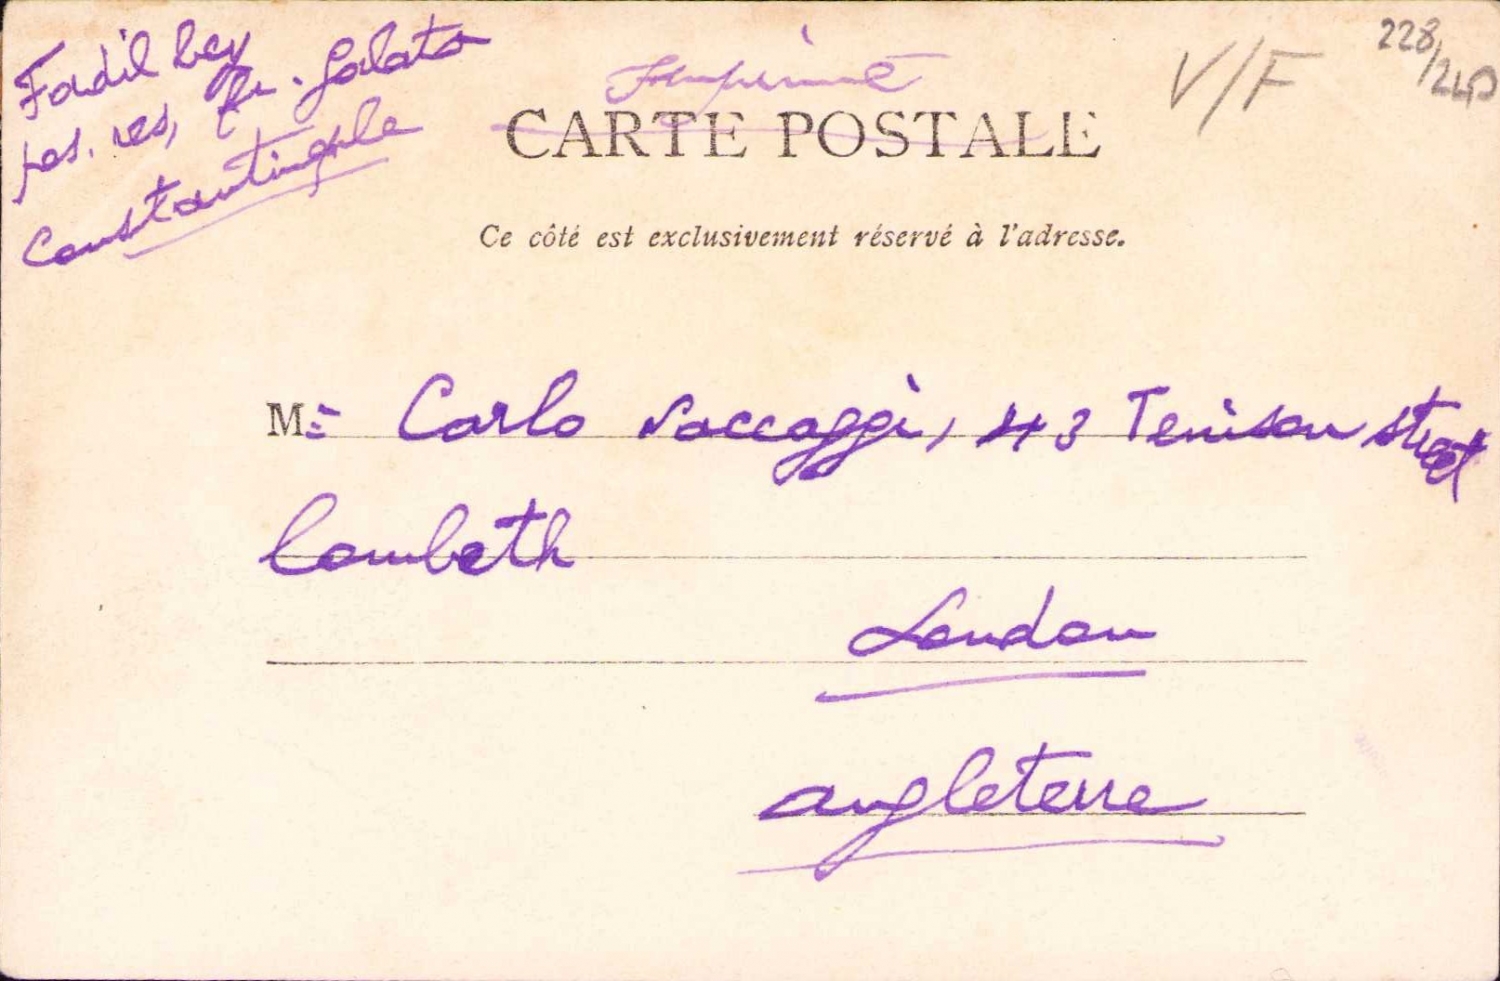 Fadil bey
pos. res, fr. Galata
Constantinople
Imprimé
CARTE POSTALE
V/F
228/240
Ce côté est exclusivement réservé à l'adresse.
M: Carlo Saccaggi, 43 Tenison street
lambeth
London
angleterre